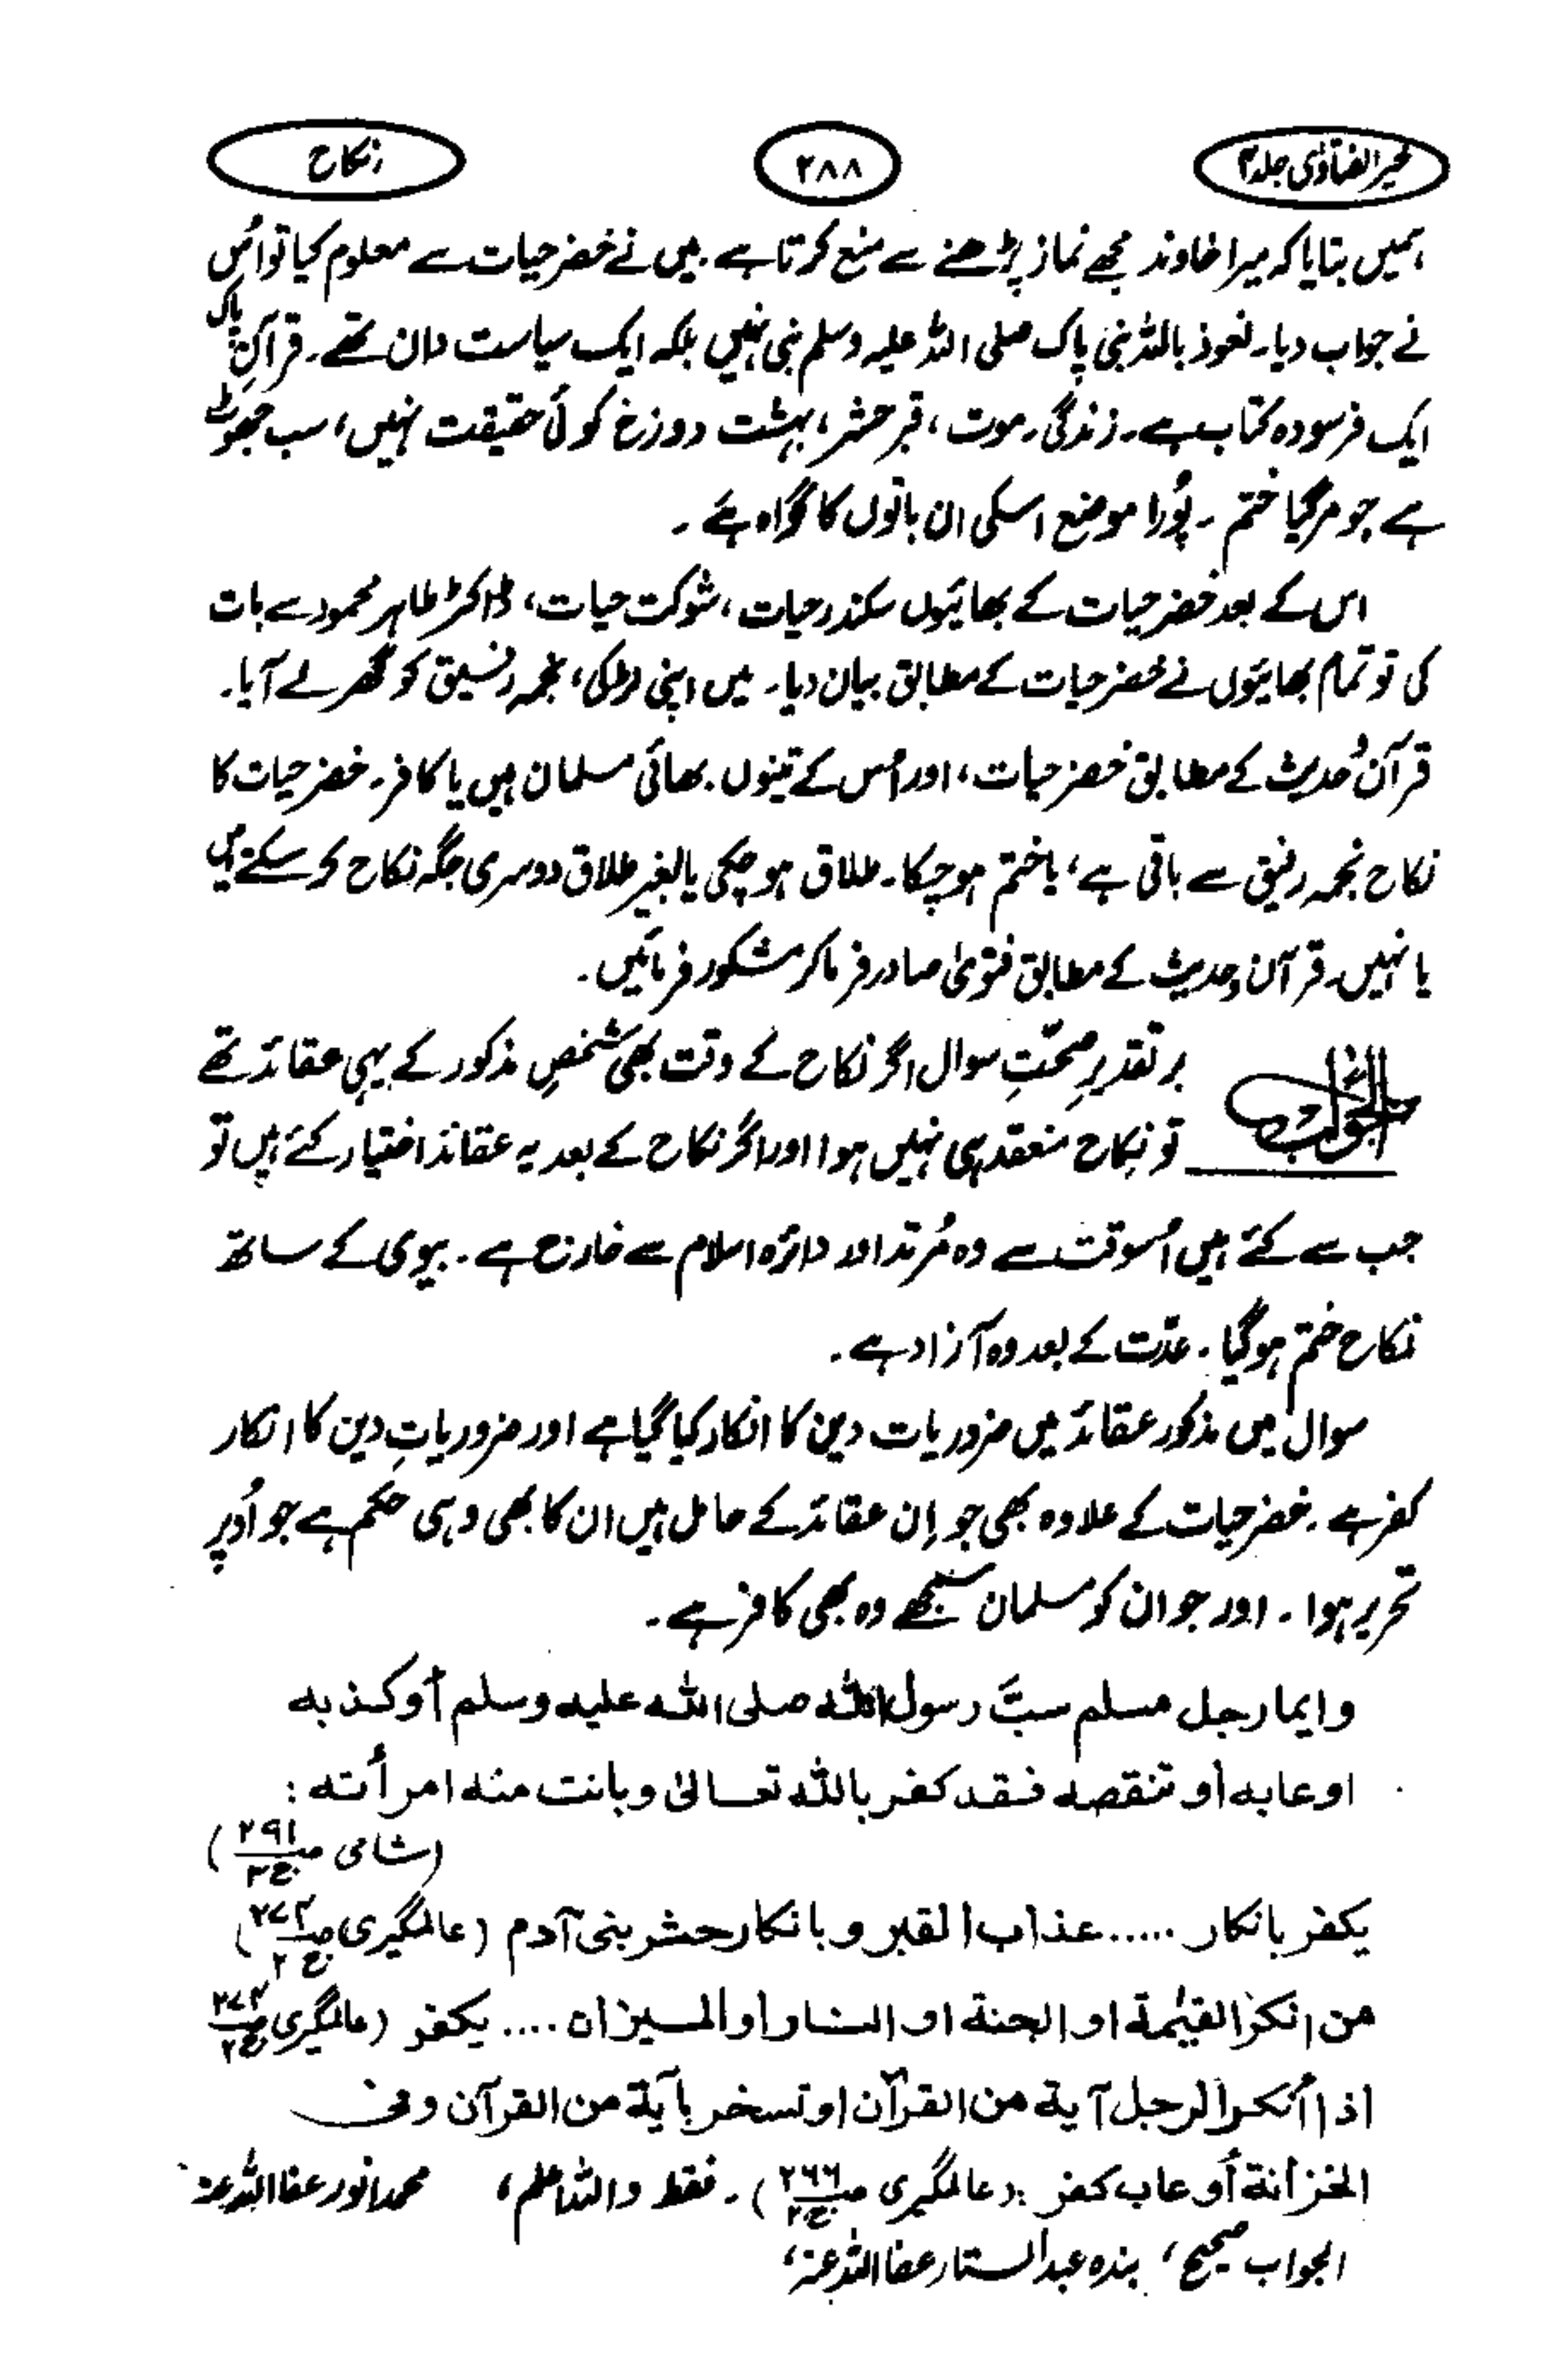 خیر الفتاوٰی جلد ۴
۲۸۸
نکاح
ہمیں بتایا کہ میرا خاوند مجھے نماز پڑھنے سے منع کرتا ہے۔ میں نے خضر حیات سے معلوم کیا تو اُس
نے جواب دیا۔ نعوذ باللہ نبی پاک صلی اللہ علیہ وسلم نبی نہیں بلکہ ایک سیاست دان تھے۔ قرآنِ پاک
ایک فرسودہ کتاب ہے۔ زندگی۔ موت، قبر حشر، بہشت دوزخ کوئی حقیقت نہیں، سب جھوٹ
ہے جو مرگیا ختم ۔ پُورا موضع اسکی ان باتوں کا گواہ ہے ۔
اس کے بعد خضر حیات کے بھائیوں سکندر حیات، شوکت حیات، ڈاکٹر طاہر محمود سے بات
کی تو تمام بھائیوں نے خضر حیات کے مطابق بیان دیا۔ میں اپنی لڑکی، نجمہ رفیق کو گھر لے آیا۔
قرآن و حدیث کے مطابق خضر حیات، اور اُس کے تینوں بھائی مسلمان ہیں یا کافر۔ خضر حیات کا
نکاح نجمہ رفیق سے باقی ہے، یا ختم ہو چکا۔ طلاق ہو چکی یا بغیر طلاق دوسری جگہ نکاح کر سکتے ہیں
یا نہیں۔ قرآن و حدیث کے مطابق فتویٰ صادر فرما کر مشکور فرمائیں۔
الجواب
بر تقدیرِ صحّتِ سوال اگر نکاح کے وقت بھی شخصِ مذکور کے یہی عقائد تھے
تو نکاح منعقد ہی نہیں ہوا اور اگر نکاح کے بعد یہ عقائد اختیار کئے ہیں تو
جب سے کئے ہیں اُسوقت سے وہ مُرتد اور دائرہ اسلام سے خارج ہے۔ بیوی کے ساتھ
نکاح ختم ہو گیا۔ عدّت کے بعد وہ آزاد ہے۔
سوال میں مذکور عقائد میں ضروریات دین کا انکار کیا گیا ہے اور ضروریاتِ دین کا انکار
کفر ہے۔ خضر حیات کے علاوہ بھی جو اِن عقائد کے حامل ہیں ان کا بھی وہی حکم ہے جو اُوپر
تحریر ہوا۔ اور جو ان کو مسلمان سمجھے وہ بھی کافر ہے۔
وایما رجل مسلم سبَّ رسول اللہ صلی اللہ علیہ وسلم أو کذبہ
او عابہ أو تنقصہ فقد کفر باللہ تعالیٰ وبانت منہ امرأتہ :
(شامی ص ۲۹۱ ج ۳)
یکفر بانکار ..... عذاب القبر و بانکار حشر بنی آدم (عالمگیری ص ۲۷۴ ج ۲)
من انکر القیٰمة او الجنة او النار او المیزان .... یکفر (عالمگیری ص ۲۷۴ ج ۲
اذا أنکر الرجل آیة من القرآن او تسخر بآیة من القرآن وفی
الخزانة أو عاب کفر :(عالمگیری ص ۲۶۶ ج ۲)۔ فقط واللہ اعلم، محمد انور عفا اللہ عنہ
الجواب صحیح، بندہ عبدالستار عفا اللہ عنہ،